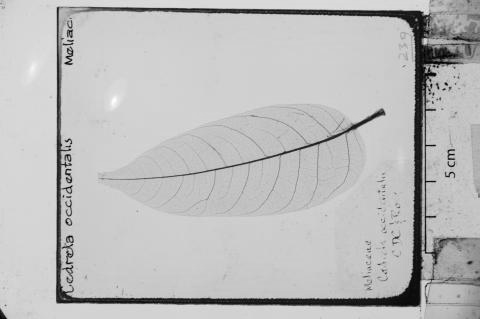 Cedrela occidentalis Meliac.
239
Meliaceae
Cedrela occidentalis
C DC & Rose
5 cm